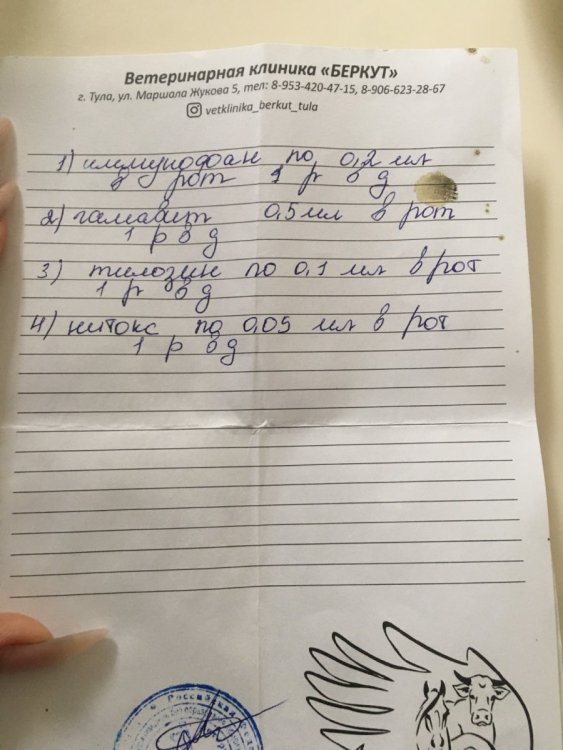 Ветеринарная клиника «БЕРКУТ»
г. Тула, ул. Маршала Жукова 5, тел: 8-953-420-47-15, 8-906-623-28-67
vetklinika_berkut_tula
1) иммунофан по 0,2 мл
в рот 1 р в д
2) гамавит 0,5 мл в рот
1 р в д
3) тилозин по 0,1 мл в рот
1 р в д
4) нитокс по 0,05 мл в рот
1 р в д